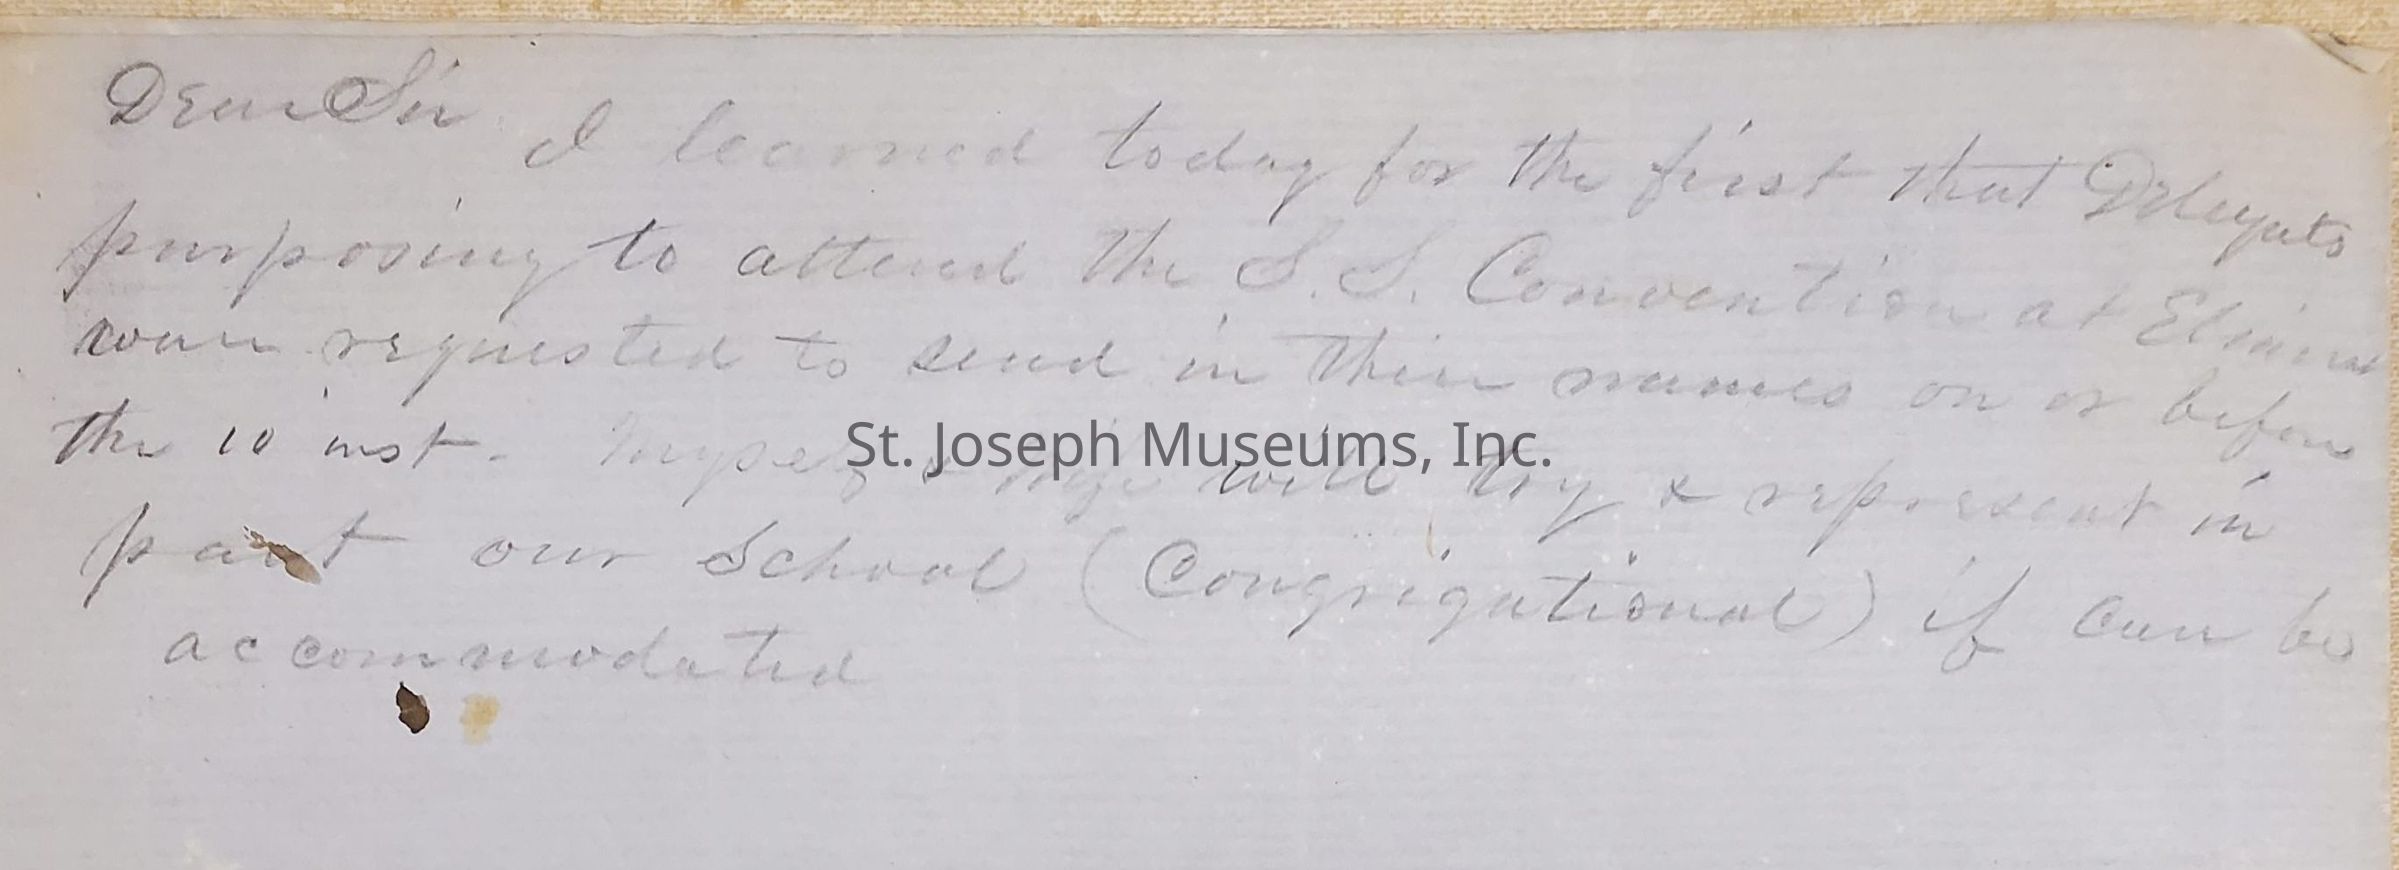 Dear Sir
I learned today for the first that Delegats
purposing to attend the S. S. Convention at Elmira
were requested to send in their names on or before
the 10 inst. Myself & wife will try & represent in
St. Joseph Museums, Inc.
part our School (Congrigational) if can be
accommodated